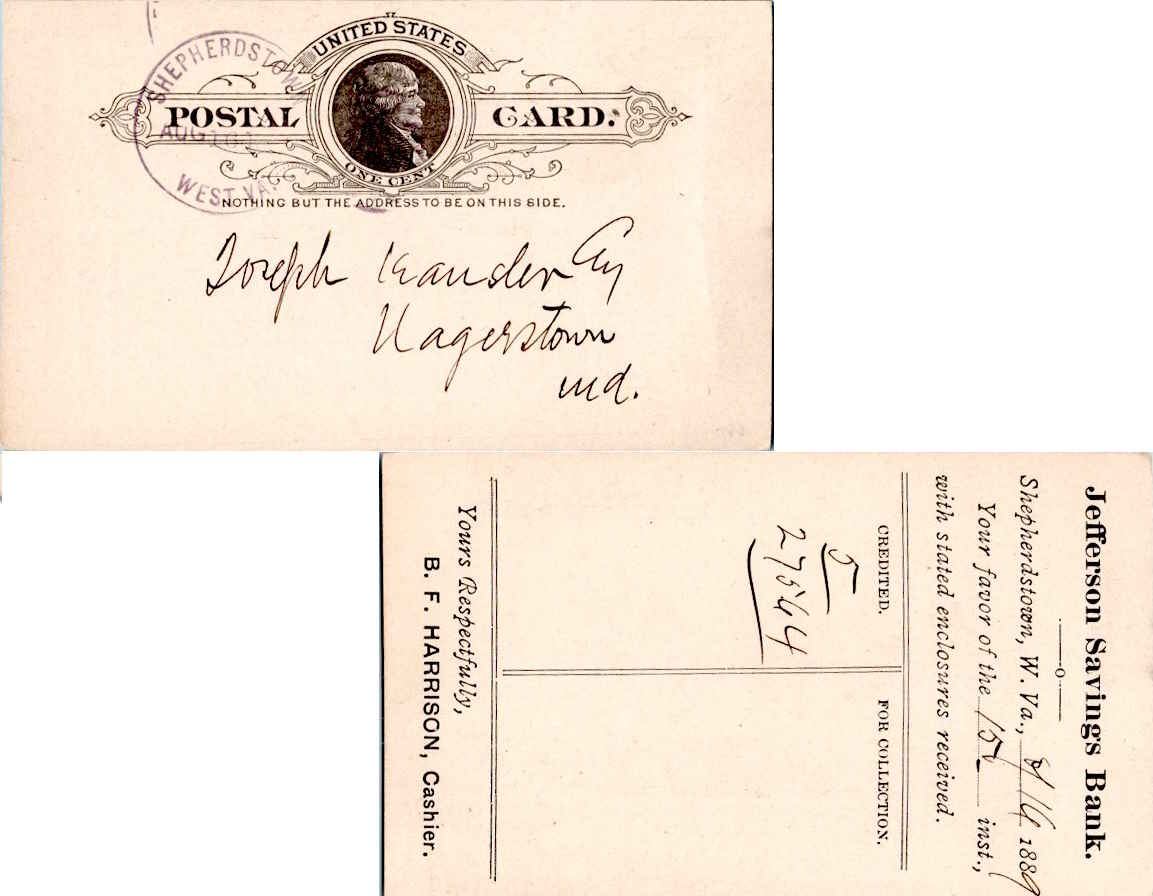 UNITED STATES
POSTAL CARD.
ONE CENT
SHEPHERDSTOWN
AUG 16
WEST VA.
NOTHING BUT THE ADDRESS TO BE ON THIS SIDE.
Joseph
Hagerstown
Md.
Jefferson Savings Bank.
Shepherdstown, W. Va., 8/16 1889
Your favor of the 15 inst.,
with stated enclosures received.
CREDITED. FOR COLLECTION.
5
275 44
Yours Respectfully,
B. F. HARRISON, Cashier.